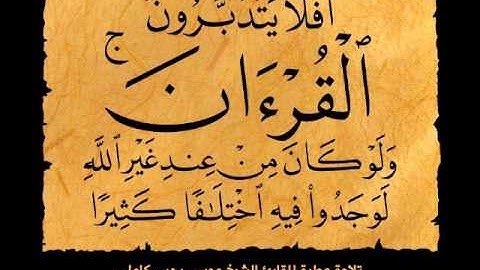 أَفَلَا يَتَدَبَّرُونَ
ٱلْقُرْءَانَ ۚ
وَلَوْ كَانَ مِنْ عِندِ غَيْرِ ٱللَّهِ
لَوَجَدُوا۟ فِيهِ ٱخْتِلَٰفًا كَثِيرًا
تلاوة عطرة للقارئ الشيخ